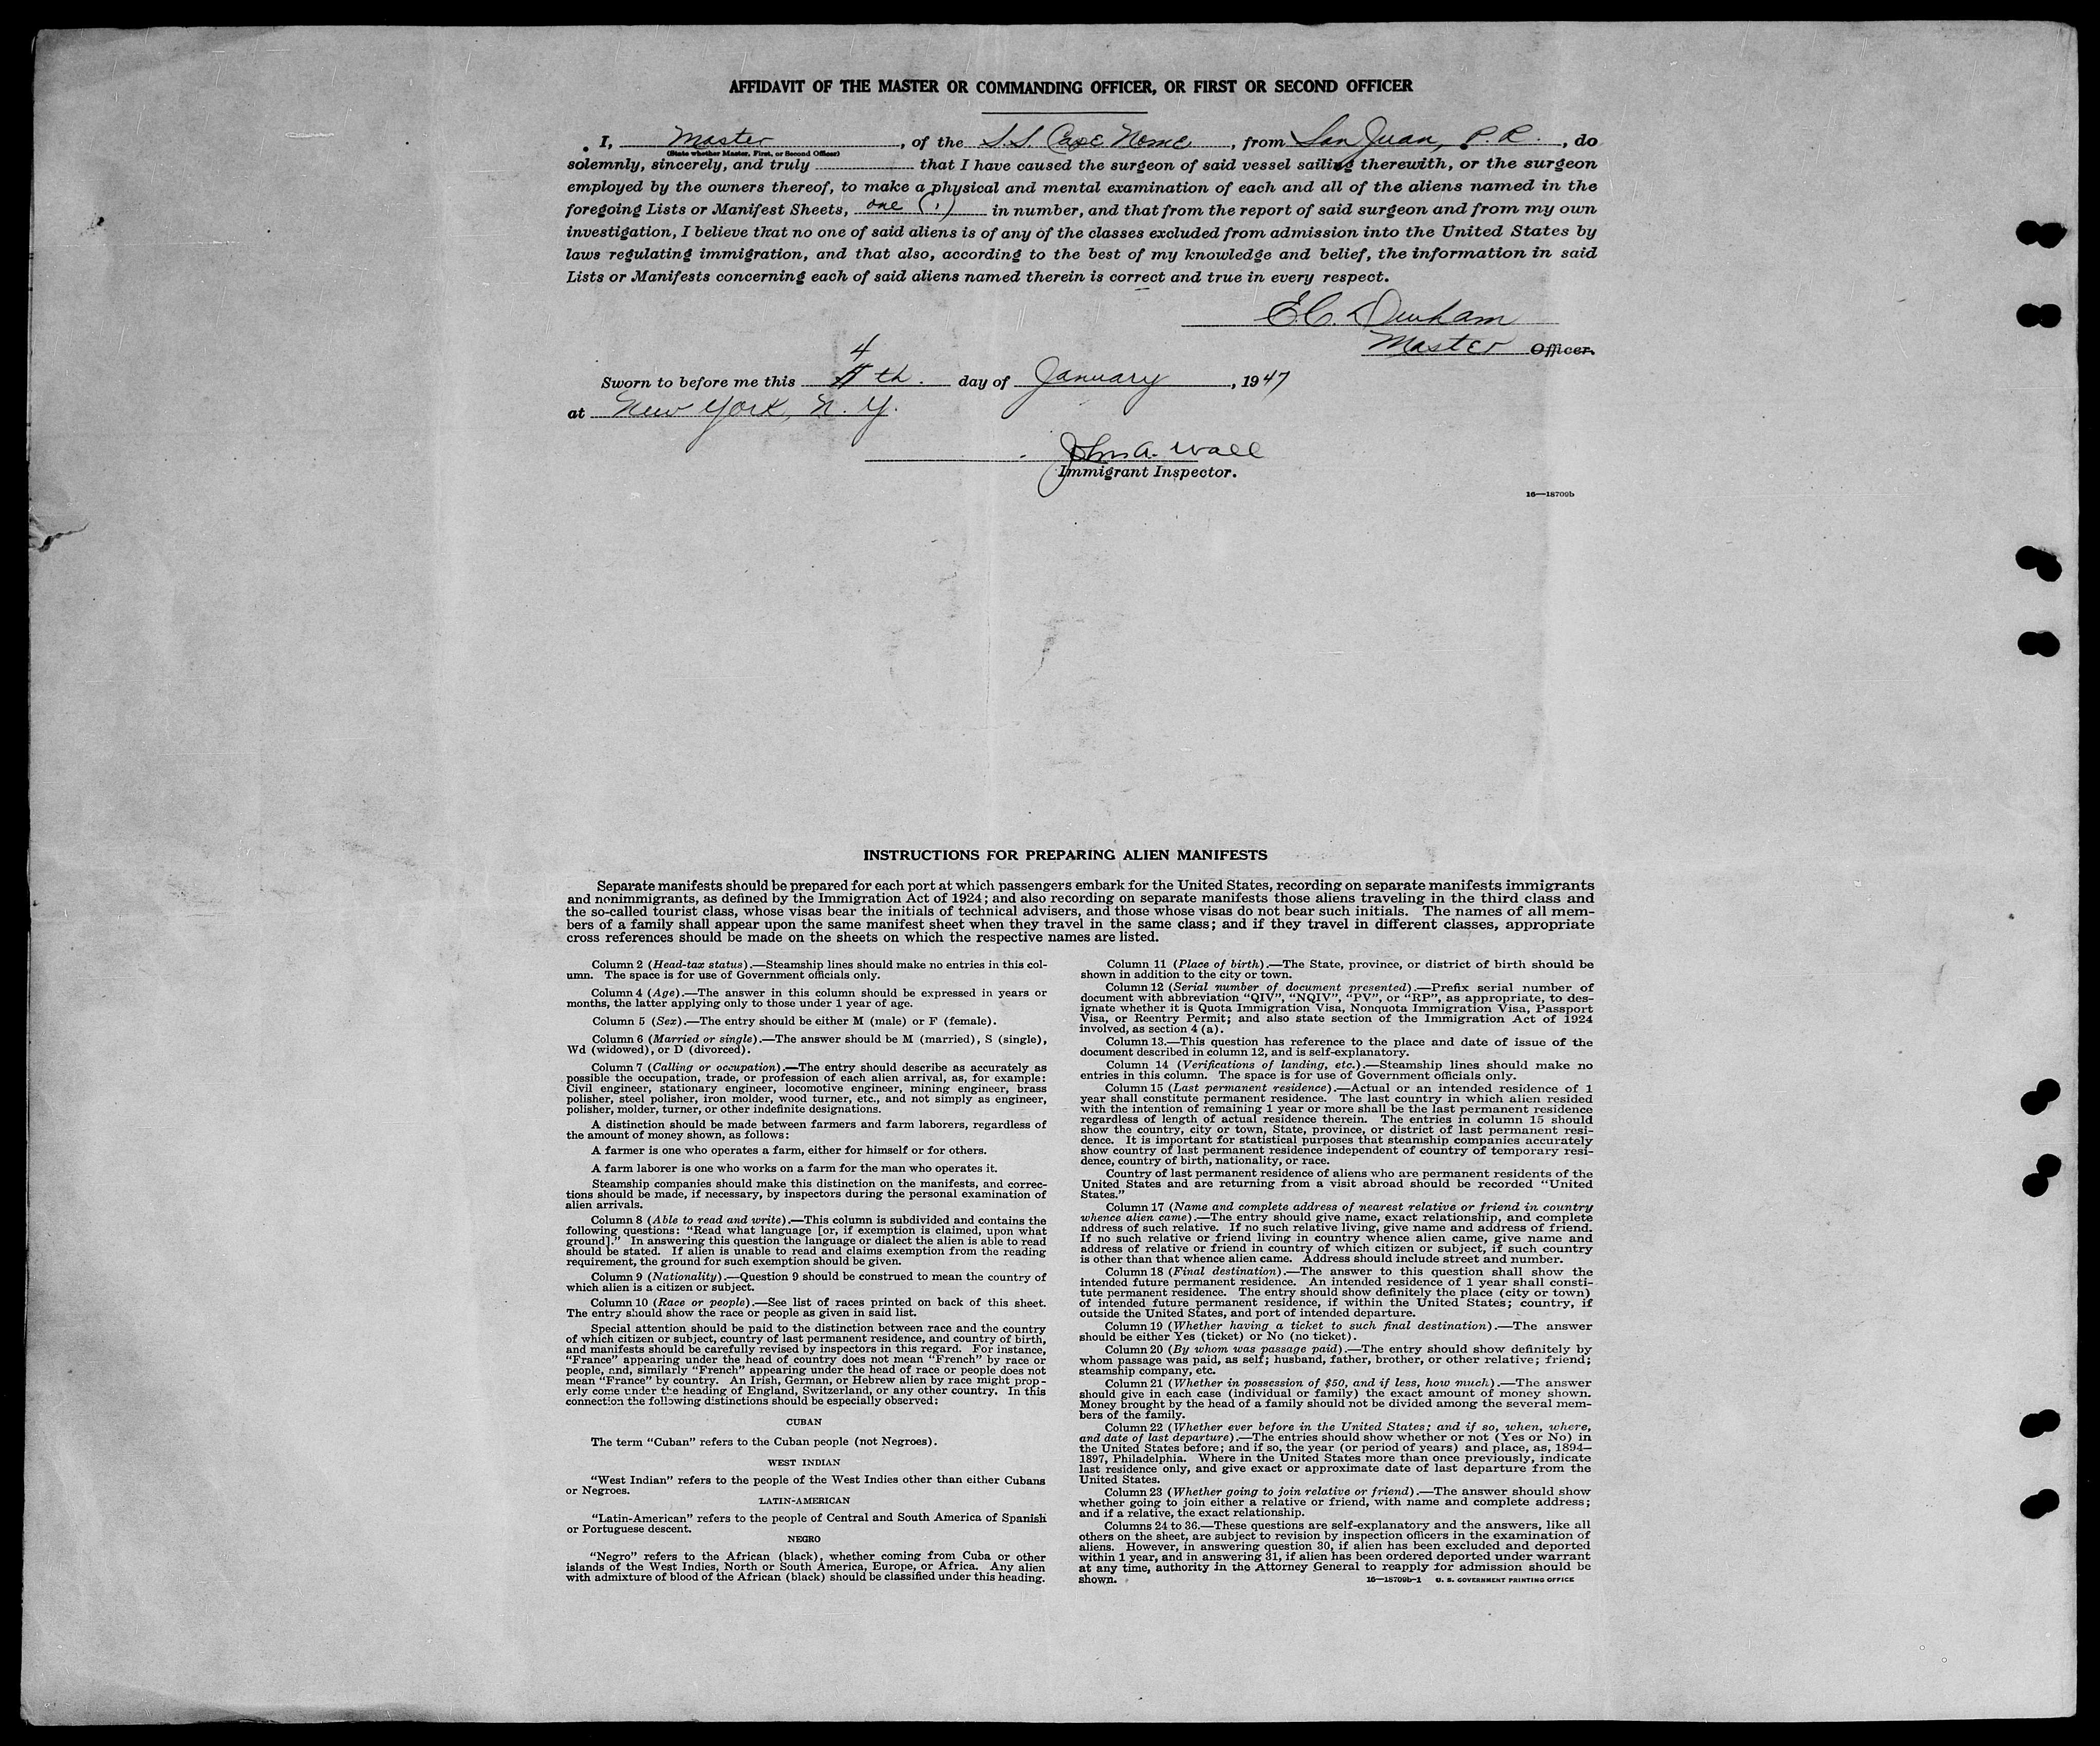 AFFIDAVIT OF THE MASTER OR COMMANDING OFFICER, OR FIRST OR SECOND OFFICER
I, Master, of the S.S. Cape Nome, from San Juan, P. R., do
(State whether Master, First, or Second Officer)
solemnly, sincerely, and truly that I have caused the surgeon of said vessel sailing therewith, or the surgeon
employed by the owners thereof, to make a physical and mental examination of each and all of the aliens named in the
foregoing Lists or Manifest Sheets, one (1) in number, and that from the report of said surgeon and from my own
investigation, I believe that no one of said aliens is of any of the classes excluded from admission into the United States by
laws regulating immigration, and that also, according to the best of my knowledge and belief, the information in said
Lists or Manifests concerning each of said aliens named therein is correct and true in every respect.
E.C. Denham
Master Officer.
4
Sworn to before me this th. day of January, 1947
at New York, N. Y.
John A. Wall
Immigrant Inspector.
16—18709b
INSTRUCTIONS FOR PREPARING ALIEN MANIFESTS
Separate manifests should be prepared for each port at which passengers embark for the United States, recording on separate manifests immigrants
and nonimmigrants, as defined by the Immigration Act of 1924; and also recording on separate manifests those aliens traveling in the third class and
the so-called tourist class, whose visas bear the initials of technical advisers, and those whose visas do not bear such initials. The names of all mem-
bers of a family shall appear upon the same manifest sheet when they travel in the same class; and if they travel in different classes, appropriate
cross references should be made on the sheets on which the respective names are listed.
Column 2 (Head-tax status).—Steamship lines should make no entries in this col-
umn. The space is for use of Government officials only.
Column 4 (Age).—The answer in this column should be expressed in years or
months, the latter applying only to those under 1 year of age.
Column 5 (Sex).—The entry should be either M (male) or F (female).
Column 6 (Married or single).—The answer should be M (married), S (single),
Wd (widowed), or D (divorced).
Column 7 (Calling or occupation).—The entry should describe as accurately as
possible the occupation, trade, or profession of each alien arrival, as, for example:
Civil engineer, stationary engineer, locomotive engineer, mining engineer, brass
polisher, steel polisher, iron molder, wood turner, etc., and not simply as engineer,
polisher, molder, turner, or other indefinite designations.
A distinction should be made between farmers and farm laborers, regardless of
the amount of money shown, as follows:
A farmer is one who operates a farm, either for himself or for others.
A farm laborer is one who works on a farm for the man who operates it.
Steamship companies should make this distinction on the manifests, and correc-
tions should be made, if necessary, by inspectors during the personal examination of
alien arrivals.
Column 8 (Able to read and write).—This column is subdivided and contains the
following questions: "Read what language [or, if exemption is claimed, upon what
ground]." In answering this question the language or dialect the alien is able to read
should be stated. If alien is unable to read and claims exemption from the reading
requirement, the ground for such exemption should be given.
Column 9 (Nationality).—Question 9 should be construed to mean the country of
which alien is a citizen or subject.
Column 10 (Race or people).—See list of races printed on back of this sheet.
The entry should show the race or people as given in said list.
Special attention should be paid to the distinction between race and the country
of which citizen or subject, country of last permanent residence, and country of birth,
and manifests should be carefully revised by inspectors in this regard. For instance,
"France" appearing under the head of country does not mean "French" by race or
people, and, similarly "French" appearing under the head of race or people does not
mean "France" by country. An Irish, German, or Hebrew alien by race might prop-
erly come under the heading of England, Switzerland, or any other country. In this
connection the following distinctions should be especially observed:
CUBAN
The term "Cuban" refers to the Cuban people (not Negroes).
WEST INDIAN
"West Indian" refers to the people of the West Indies other than either Cubans
or Negroes.
LATIN-AMERICAN
"Latin-American" refers to the people of Central and South America of Spanish
or Portuguese descent.
NEGRO
"Negro" refers to the African (black), whether coming from Cuba or other
islands of the West Indies, North or South America, Europe, or Africa. Any alien
with admixture of blood of the African (black) should be classified under this heading.
Column 11 (Place of birth).—The State, province, or district of birth should be
shown in addition to the city or town.
Column 12 (Serial number of document presented).—Prefix serial number of
document with abbreviation "QIV", "NQIV", "PV", or "RP", as appropriate, to des-
ignate whether it is Quota Immigration Visa, Nonquota Immigration Visa, Passport
Visa, or Reentry Permit; and also state section of the Immigration Act of 1924
involved, as section 4 (a).
Column 13.—This question has reference to the place and date of issue of the
document described in column 12, and is self-explanatory.
Column 14 (Verifications of landing, etc.).—Steamship lines should make no
entries in this column. The space is for use of Government officials only.
Column 15 (Last permanent residence).—Actual or an intended residence of 1
year shall constitute permanent residence. The last country in which alien resided
with the intention of remaining 1 year or more shall be the last permanent residence
regardless of length of actual residence therein. The entries in column 15 should
show the country, city or town, State, province, or district of last permanent resi-
dence. It is important for statistical purposes that steamship companies accurately
show country of last permanent residence independent of country of temporary resi-
dence, country of birth, nationality, or race.
Country of last permanent residence of aliens who are permanent residents of the
United States and are returning from a visit abroad should be recorded "United
States."
Column 17 (Name and complete address of nearest relative or friend in country
whence alien came).—The entry should give name, exact relationship, and complete
address of such relative. If no such relative living, give name and address of friend.
If no such relative or friend living in country whence alien came, give name and
address of relative or friend in country of which citizen or subject, if such country
is other than that whence alien came. Address should include street and number.
Column 18 (Final destination).—The answer to this question shall show the
intended future permanent residence. An intended residence of 1 year shall consti-
tute permanent residence. The entry should show definitely the place (city or town)
of intended future permanent residence, if within the United States; country, if
outside the United States, and port of intended departure.
Column 19 (Whether having a ticket to such final destination).—The answer
should be either Yes (ticket) or No (no ticket).
Column 20 (By whom was passage paid).—The entry should show definitely by
whom passage was paid, as self; husband, father, brother, or other relative; friend;
steamship company, etc.
Column 21 (Whether in possession of $50, and if less, how much).—The answer
should give in each case (individual or family) the exact amount of money shown.
Money brought by the head of a family should not be divided among the several mem-
bers of the family.
Column 22 (Whether ever before in the United States; and if so, when, where,
and date of last departure).—The entries should show whether or not (Yes or No) in
the United States before; and if so, the year (or period of years) and place, as, 1894–
1897, Philadelphia. Where in the United States more than once previously, indicate
last residence only, and give exact or approximate date of last departure from the
United States.
Column 23 (Whether going to join relative or friend).—The answer should show
whether going to join either a relative or friend, with name and complete address;
and if a relative, the exact relationship.
Columns 24 to 36.—These questions are self-explanatory and the answers, like all
others on the sheet, are subject to revision by inspection officers in the examination of
aliens. However, in answering question 30, if alien has been excluded and deported
within 1 year, and in answering 31, if alien has been ordered deported under warrant
at any time, authority in the Attorney General to reapply for admission should be
shown.
16—18709b-1 U. S. GOVERNMENT PRINTING OFFICE